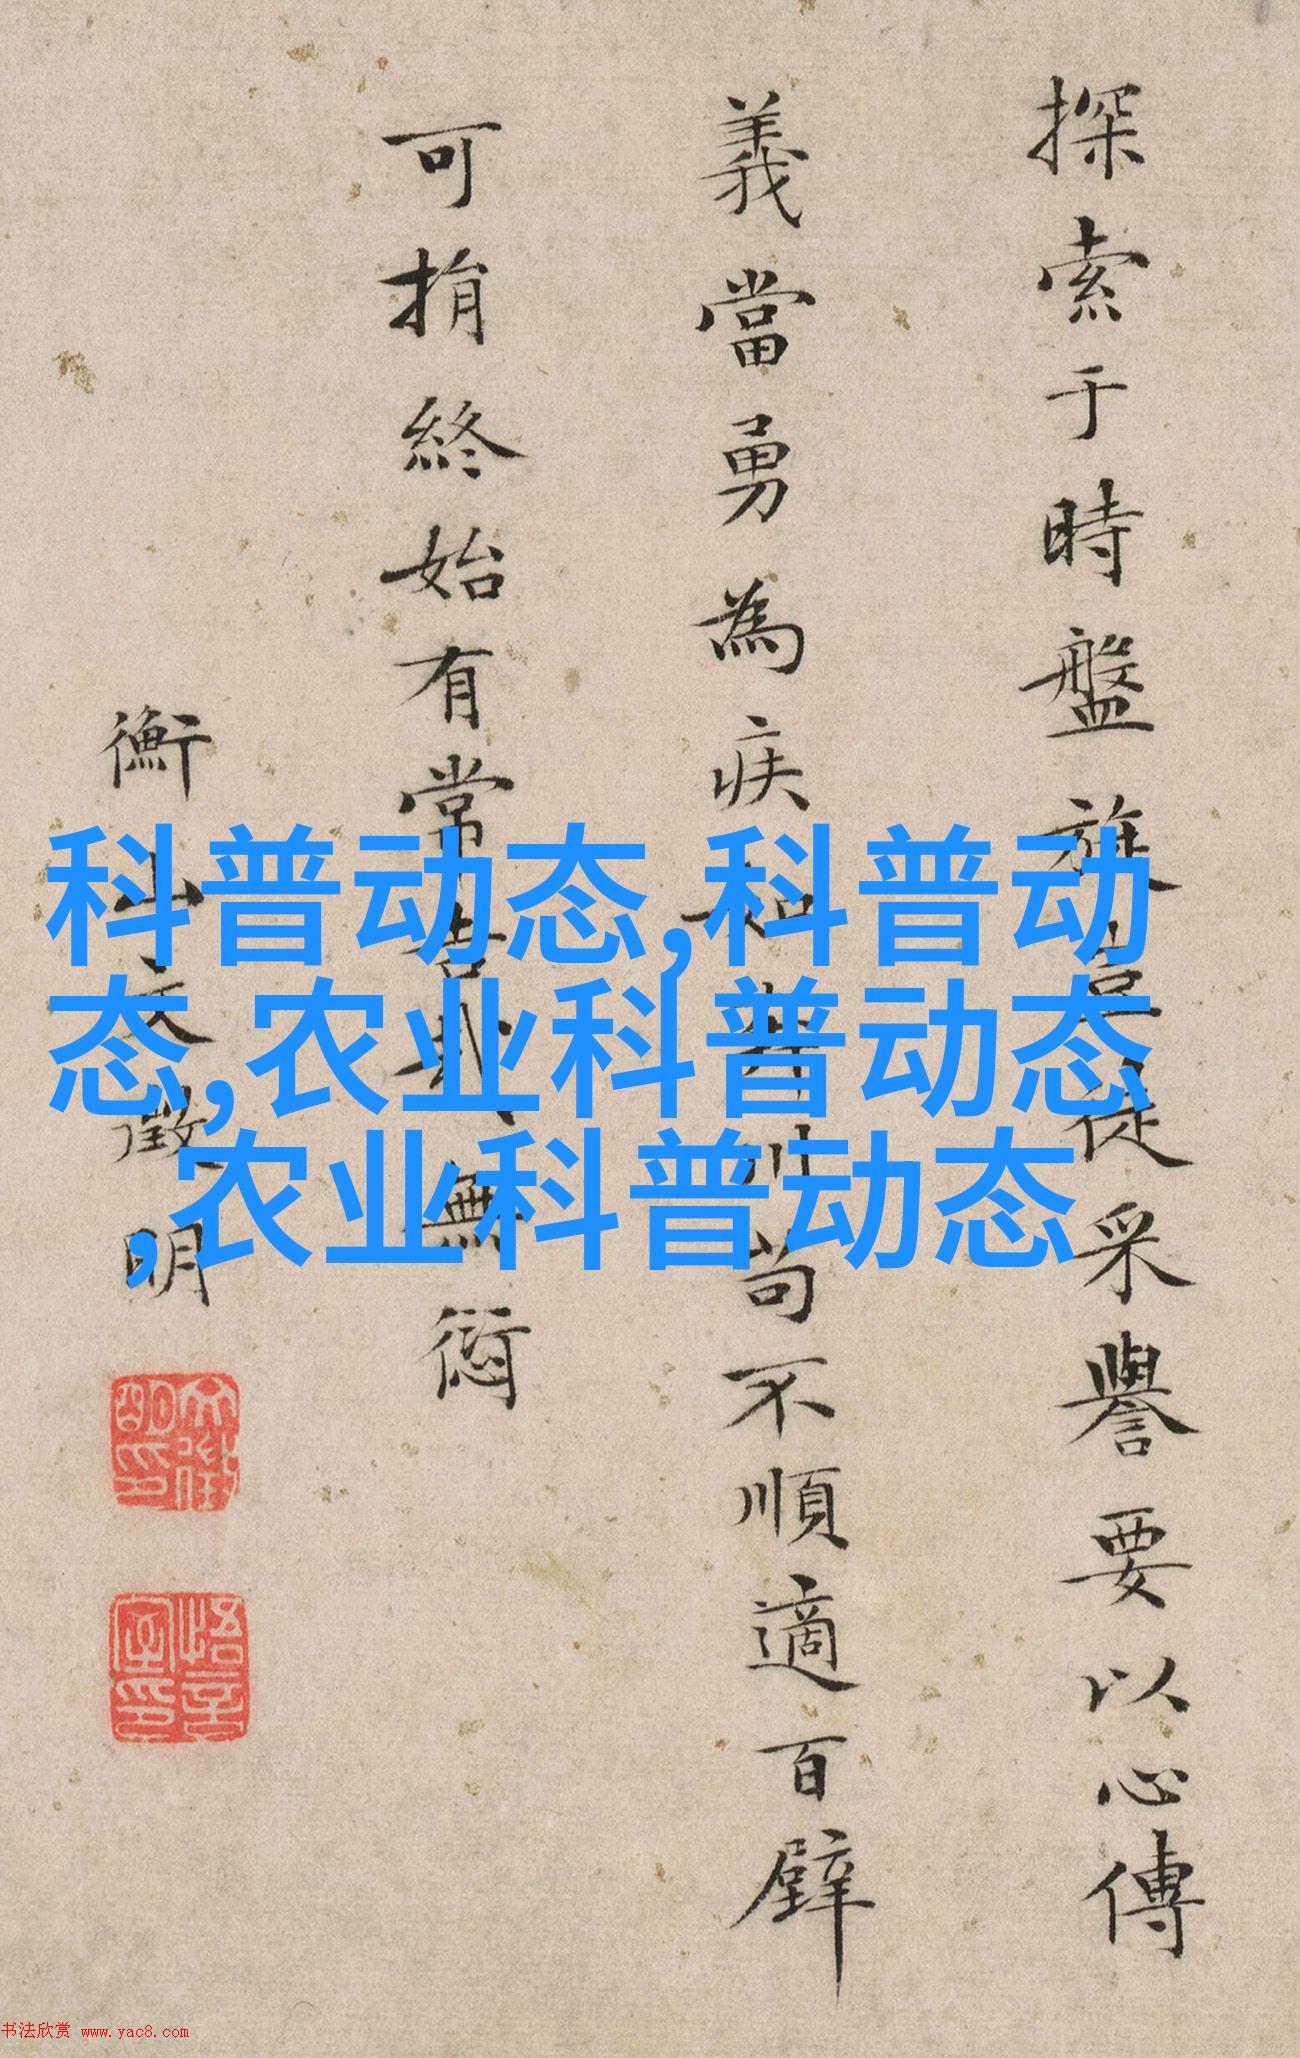 探索于時盤旋言徒采譽要以心傳
義當勇為疾如苟不順適百
可捐終始有常吉無愆
衡山文徵明
科普动态,科普动
态,农业科普动态
,农业科普动态
书法欣赏 www.yac8.com